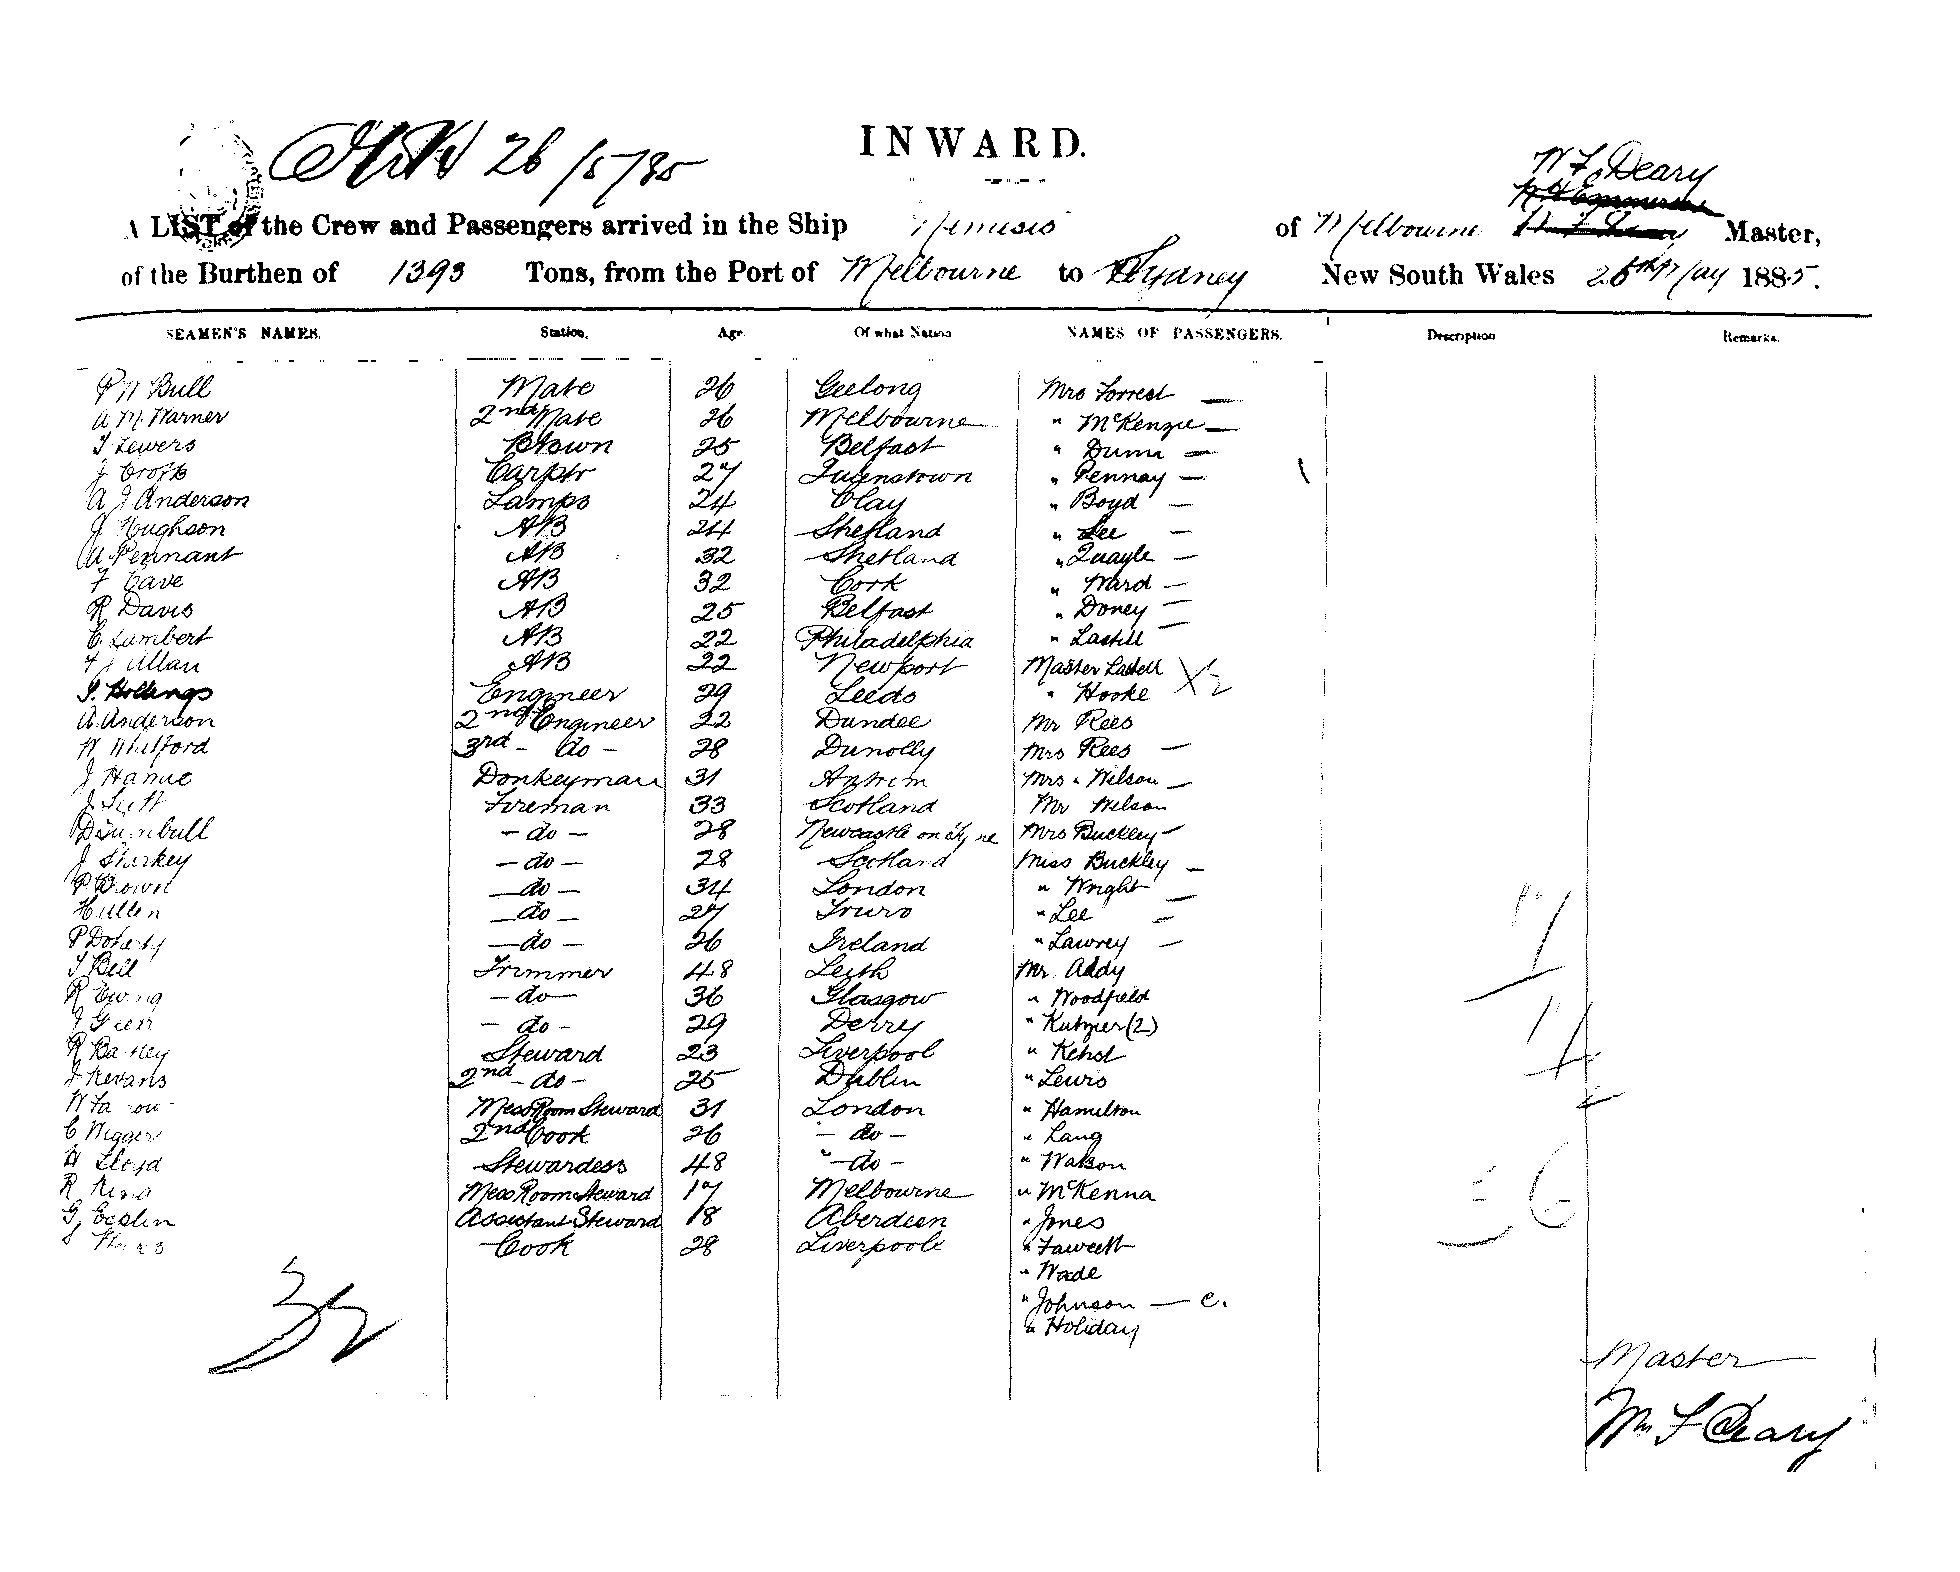 26/5/85
INWARD.
W F Deary
A LIST of the Crew and Passengers arrived in the Ship Nemesis of Melbourne Master,
of the Burthen of 1393 Tons, from the Port of Melbourne to Sydney New South Wales 26th May 1885.
SEAMEN'S NAMES. Station. Age. Of what Nation NAMES OF PASSENGERS. Description Remarks.
P W Bull Mate 26 Geelong Mrs Forrest —
A M Warner 2nd Mate 26 Melbourne " McKenzie —
T Lewers 25 Belfast " Dunn —
J Crofts Carptr 27 Queenstown " Pennay —
A J Anderson Lamps 24 Clay " Boyd —
J Hughson AB 24 Shetland " Lee —
A Pennant AB 32 Shetland " Quayle —
F Cave AB 32 Cork " Ward —
R Davis AB 25 Belfast " Doney —
C Lambert AB 22 Philadelphia " Lastell —
F J Allan AB 22 Newport Master Lastell
S. Hollings Engineer 29 Leeds " Hooke X2
A Anderson 2nd Engineer 22 Dundee Mr Rees
W Whitford 3rd - do - 28 Dunolly Mrs Rees —
J Hanue Donkeyman 31 Antrim Mrs " Wilson —
Fireman 33 Scotland Mr Wilson
D Turnbull - do - 28 Newcastle on Tyne Mrs Buckley —
J Sharkey - do - 28 Scotland Miss Buckley —
P Brown - do - 34 London " Wright —
H Allen - do - 27 Truro " Lee —
P Doherty - do - 26 Ireland " Lawrey —
T Bell Trimmer 48 Leith Mr Addy
R Ewing - do - 36 Glasgow " Woodfield
J Green - do - 29 Derry " Kutzner (2)
R Bailey Steward 23 Liverpool " Kehol
J Kevans 2nd - do - 25 Dublin " Lewis
W Farrow Mess Room Steward 31 London " Hamilton
C Wigger 2nd Cook 26 - do - " Lang
H Lloyd Stewardess 48 " - do - " Watson
R King Mess Room Steward 17 Melbourne " McKenna
G Ecclin Assistant Steward 18 Aberdeen " Jones
Cook 28 Liverpool " Fawcett
" Wade
" Johnson — c.
" Holiday
32
Master
Wm F Deary